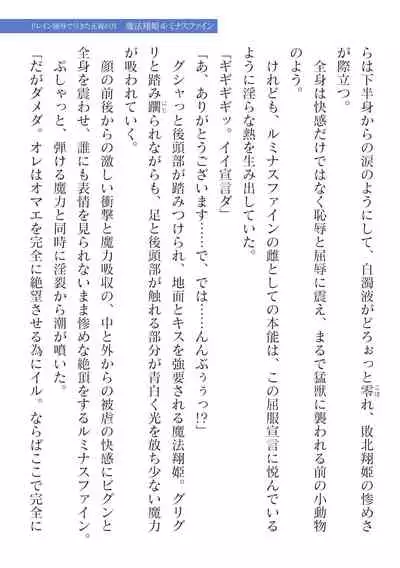 魔法翔姫ルミナスファイン
らは下半身からの涙のようにして、白濁液がどろぉっと零れ、敗北翔姫の惨めさ
が際立つ。
全身は快感だけではなく恥辱と屈辱に震え、まるで猛獣に襲われる前の小動物
のよう。
けれども、ルミナスファインの雌としての本能は、この屈服宣言に悦んでいる
ように淫らな熱を生み出していた。
「ギギギギッ。イイ宣言ダ」
「あ、ありがとうございます……で、では……んんぶぅぅっ!?」
グシャっと後頭部が踏みつけられ、地面とキスを強要される魔法翔姫。グリグ
リと踏み躙られながらも、足と後頭部が触れる部分が青白く光を放ち少ない魔力
が吸われていく。
顔の前後からの激しい衝撃と魔力吸収の、中と外からの被虐の快感にビグンと
全身を震わせ、誰にも表情を見られないまま惨めな絶頂をするルミナスファイン。
ぷしゃっと、弾ける魔力と同時に淫裂から潮が噴いた。
「だがダメダ。オレはオマエを完全に絶望させる為にイル。ならばここで完全に